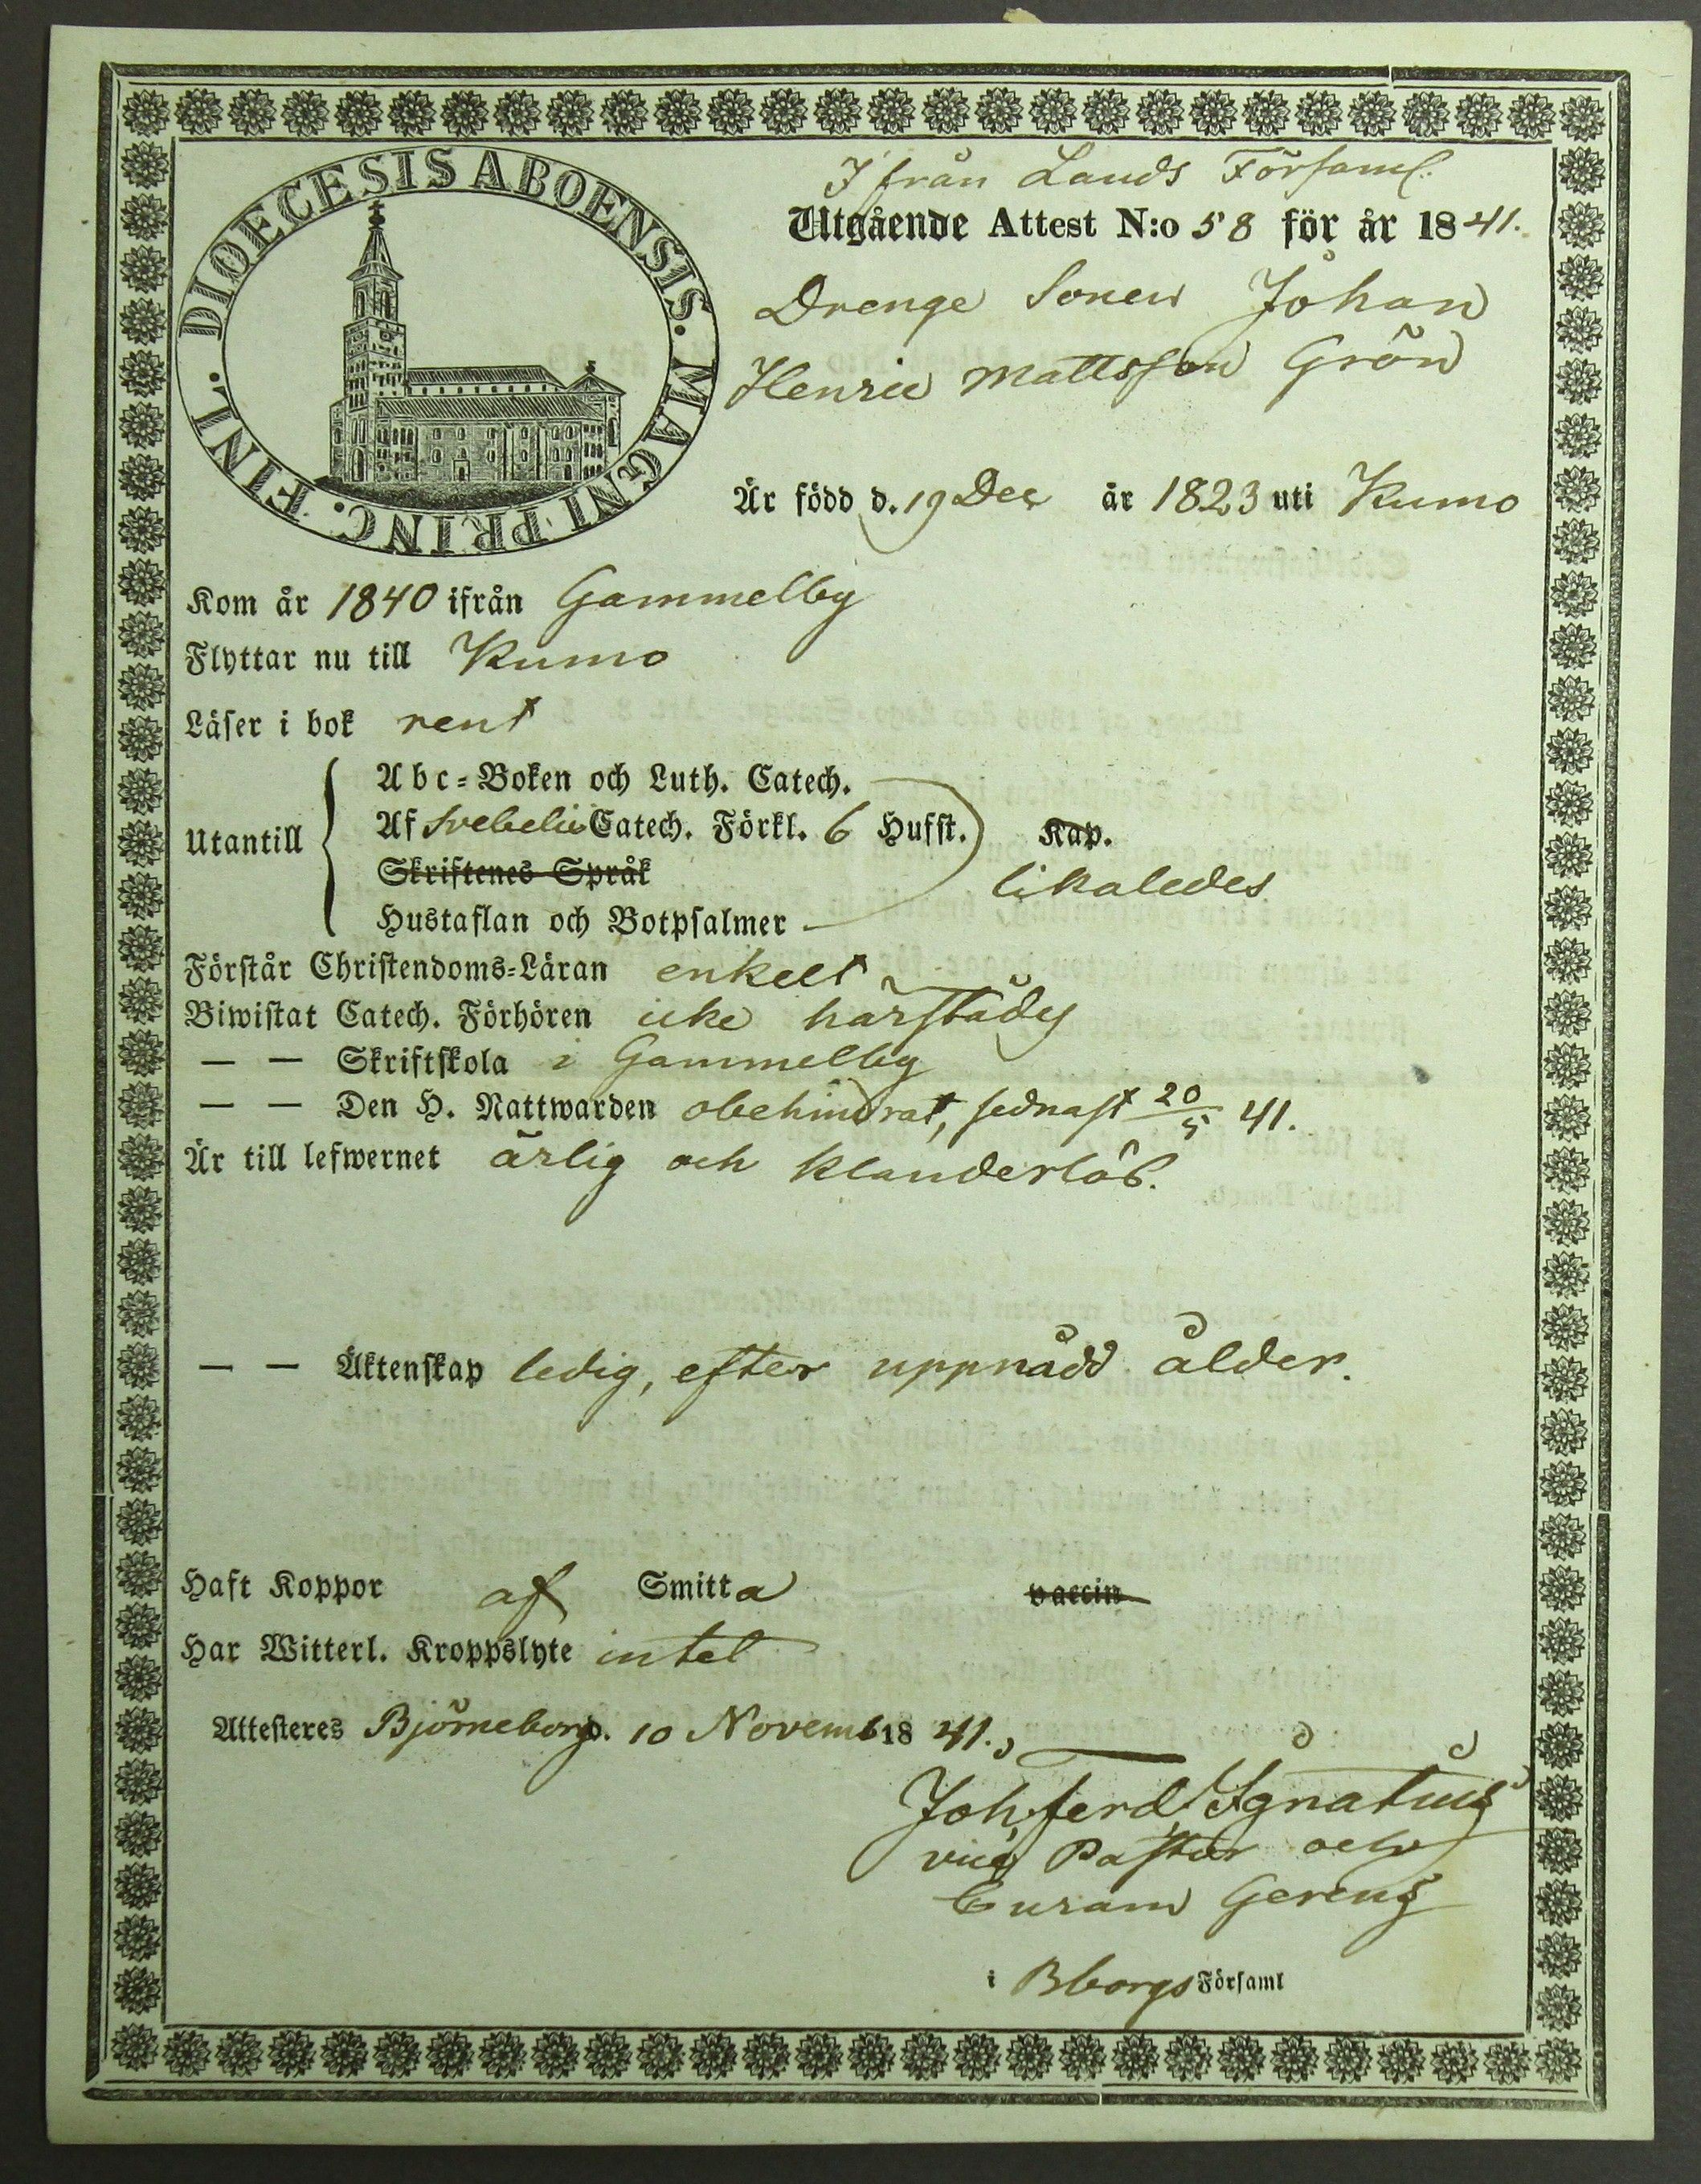 DIOECESIS ABOENSIS. MAGNI PRINC. FINL.
Ifrån Lands Församl.
Utgående Attest N:o 58 för år 1841.
Drenge Sonen Johan
Henric Mattsson Grön
Är född d. 19 Dec år 1823 uti Kumo
Kom år 1840 ifrån Gammelby
Flyttar nu till Kumo
Läser i bok rent
Utantill
Abc-Boken och Luth. Catech.
Af Svebelii Catech. Förkl. 6 Hufst. Kap.
Skriftenes Språk
likaledes
Hustaflan och Botpsalmer
Förstår Christendoms-Läran enkelt
Biwistat Catech. Förhören icke härstädes
— — Skriftskola i Gammelby
— — Den H. Nattwarden obehindrat, sednast 20/5 41.
Är till lefwernet ärlig och klanderlös.
— — Äktenskap ledig, efter uppnådd ålder.
Haft Koppor af Smitta vaccin
Har Witterl. Kroppslyte intet
Attesteres Björneborg d. 10 Novemb 1841.
Joh. Ferd. Ignatius
vice Pastor och
Curam Gerens
i Bborgs Församl